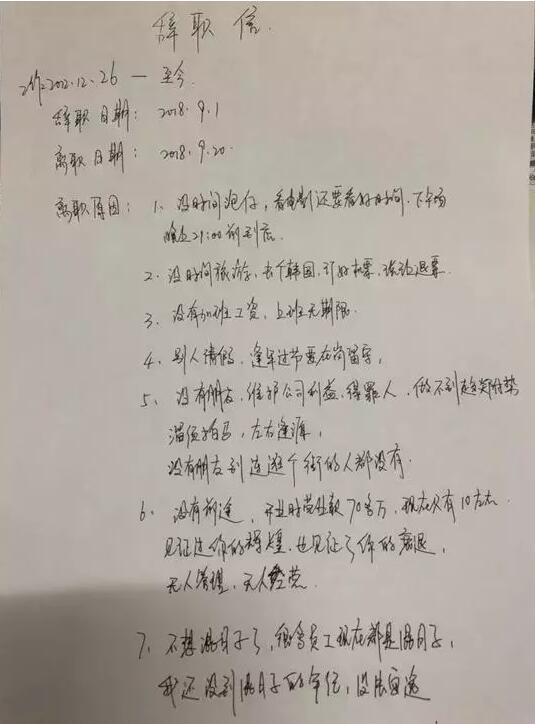 辞职信.
工作2012.12.26 — 至今.
辞职日期: 2018.9.1
离职日期: 2018.9.20.
离职原因: 1、没时间泡仔,看电影还要看好时间.下午场
晚上21:00前到店.
2. 没时间旅游,去个韩国,订好机票,被迫退票.
3、没有加班工资,上班无期限.
4、别人请假,逢年过节要在岗留守,
5、没有朋友,维护公司利益,得罪人.做不到趋炎附势
溜须拍马,左右逢源,
没有朋友到连逛个街的人都没有.
6、没有前途,开业时营业额70多万,现在只有10左右.
见证过你的辉煌.也见证了你的衰退,
无人管理,无人经营.
7、不想混日子了,很多员工现在都是混日子,
我还没到混日子的年纪,没钱